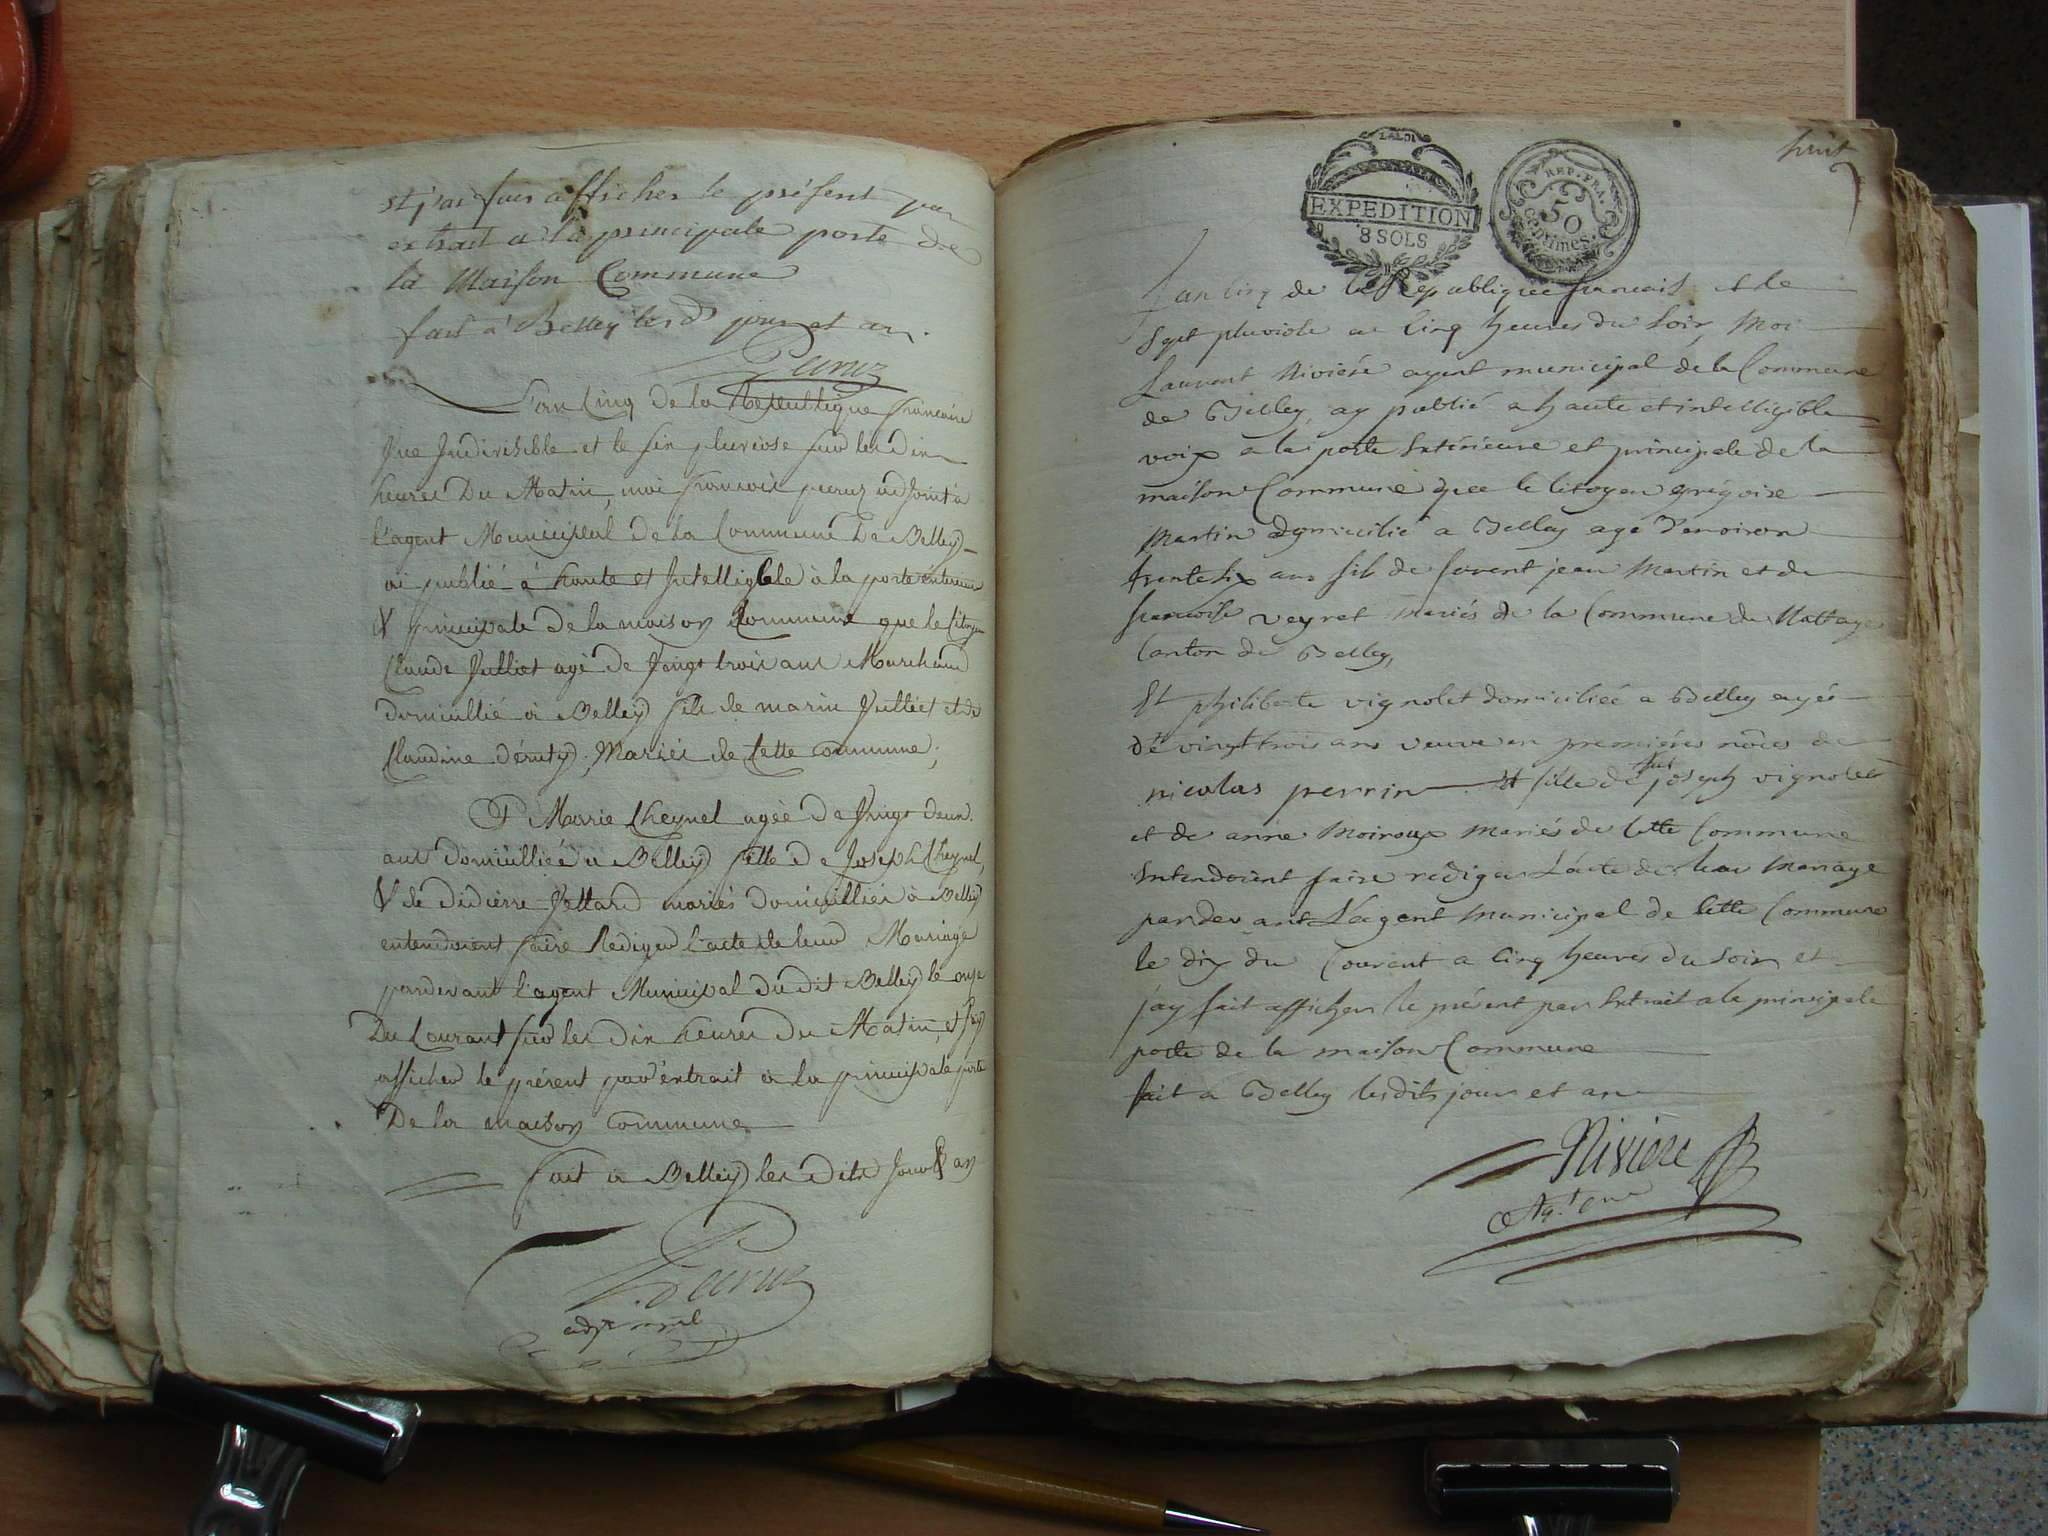 et j'ai fais afficher le présent par
extrait a la principale porte de
la Maison Commune
fait a Belley lesds jour et an.
Peruz
L'an Cinq De la Republique francaise
Une Indivisible et le six pluviose sur les dix
heures Du Matin, moi francois peruz adjoint a
l'agent Municipal De la Commune De Belley
ai publié à haute et Intelligible à la porte exterieure
& principale De la maison Commune que le Citoyen
Claude Julliet agé de Vingt trois ans Marchand
domicillié a Belley fils de marin Julliet et de
Claudine Mariés de Cette commune;
& Marie Cheynel agèe De Vingt deux
ans domicilliée a Belley fille De Joseph Cheynel,
& de didierre mariés domicilliés à Belley
entendoient faire Rediger l'acte de leur Mariage
pardevant l'agent Municipal Du dit Belley le onze
Du Courant sur les Dix heures Du Matin, et
afficher le présent par extrait a la principale porte
De la maison commune
fait a Belley les Dits Jour & an
Peruz
adjt mpal
huit
LA LOI
EXPEDITION
8 SOLS
REP. FRA.
50
centimes.
Lan Cinq de la Republique francais et le
sept pluviose a Cinq heures du soir, Moi
Laurent Riviére agent municipal de la Commune
de Belley ay publié a haute et intelligible
voix a la porte Exterieure et principale de la
maison Commune que le Citoyen grégoire
Martin domicilié a Belley age d'environ
trentesix ans fils de fut jean Martin et de
francoise veyret mariés de la Commune de Nattage
Canton de Belley,
Et philiberte vignolet domiciliée a Belley agés
de vingttrois ans veuve en premiéres nôces de
nicolas perrin et fille de fut joseph vignolet
et de anne Moiroux mariés de Cette Commune
Entendoient faire rediger L'acte de leur Mariage
pardevant L'agent Municipal de Cette Commune
le dix du Courant a Cinq heures du soir et
j'ay fait afficher le présent par Extrait a la principale
porte de la maison Commune
fait a Belley lesdits jour et an
Riviere
Agt